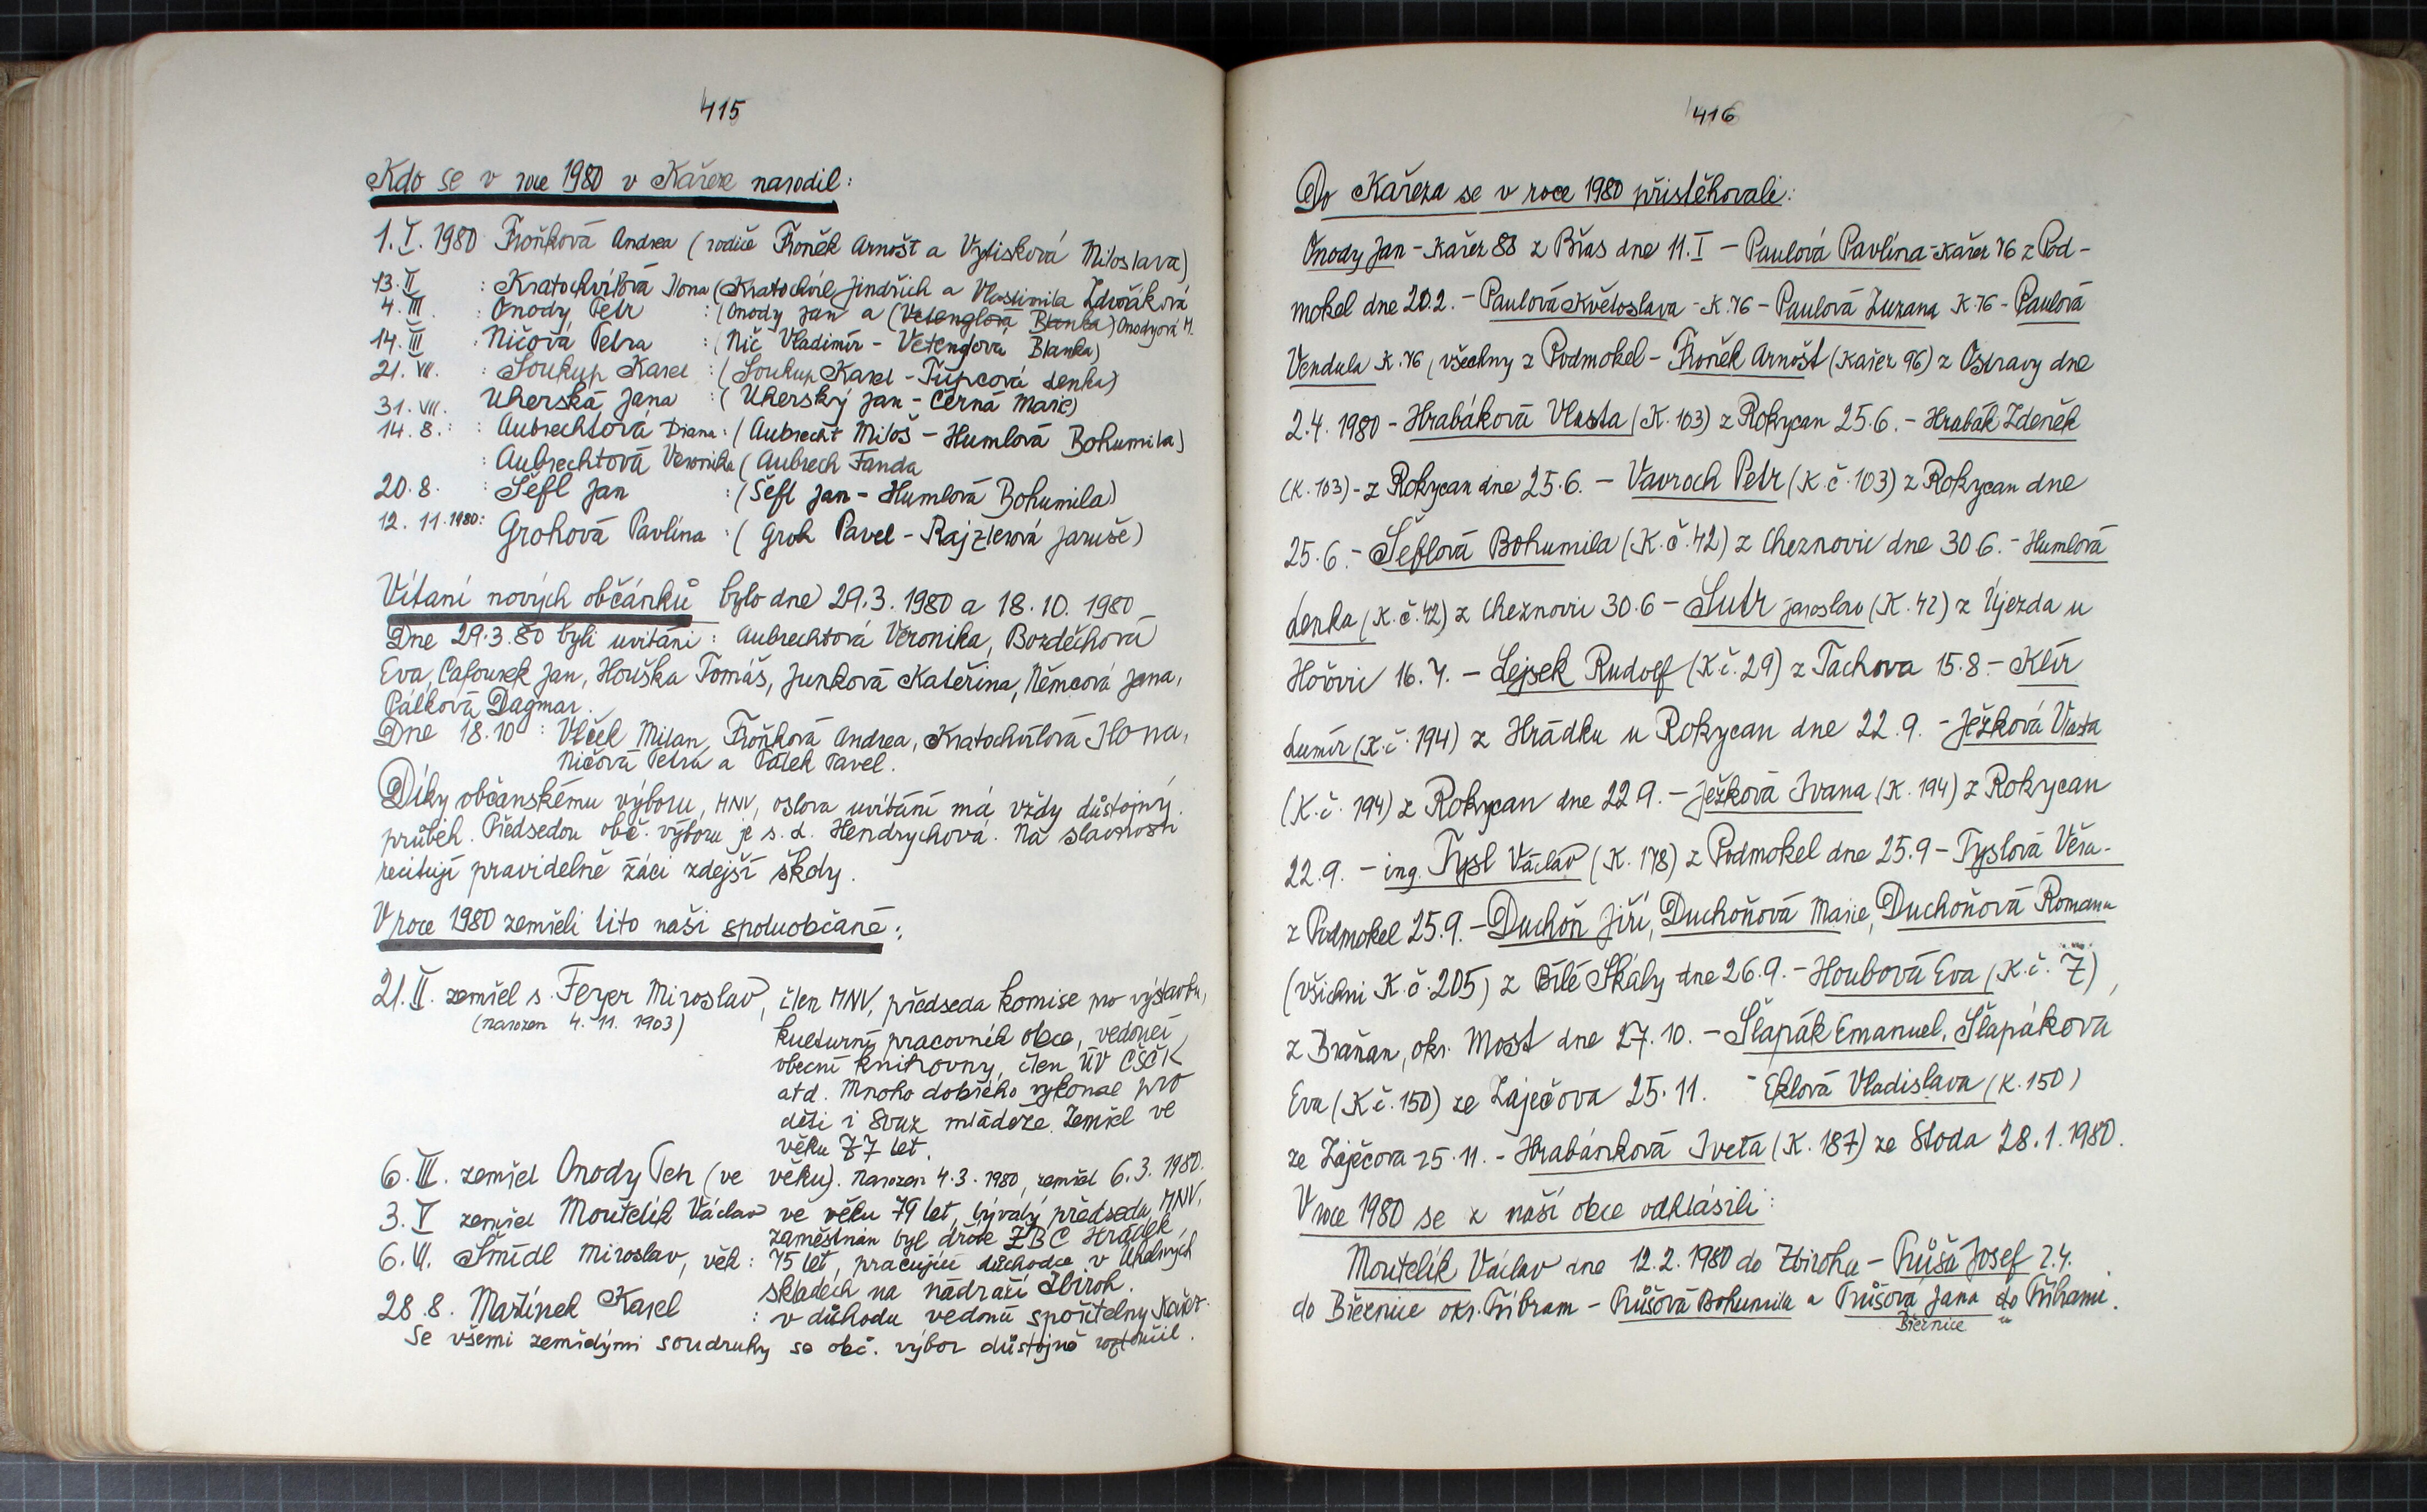 415
Kdo se v roce 1980 v Kařeze narodil:
1. I. 1980 Froňková Andrea (rodiče Froněk Arnošt a Vytisková Miloslava)
13. II : Kratochvílová Ilona (Kratochvíl Jindřich a Vlastimila Zdvořáková
4. III. : Onody Petr : (Onody Jan a (Vetenglová Blanka) Onodyová M.
14. III : Ničová Petra : (Nič Vladimír - Vetengová Blanka)
21. VII. : Soukup Karel : (Soukup Karel - Tupcová Lenka)
31. VII. Uherská Jana : (Uherský Jan - Černá Marie)
14. 8. : Aubrechtová Diana : (Aubrecht Miloš - Humlová Bohumila)
: Aubrechtová Veronika (Aubrech Fanda
20. 8. : Šefl Jan : (Šefl Jan - Humlová Bohumila)
12. 11. 1980: Grohová Pavlína : (Groh Pavel - Rajzlerová Jaruše)
Vítání nových občánků bylo dne 29.3. 1980 a 18. 10. 1980
Dne 29.3.80 byli uvítáni : Aubrechtová Veronika, Bozděchová
Eva, Cafourek Jan, Houška Tomáš, Junková Kateřina, Němcová Jana,
Pálková Dagmar.
Dne 18.10 : Vlček Milan, Froňková Andrea, Kratochvílová Ilona,
Ničová Petra a Pálek Pavel.
Díky občanskému výboru, MNV, oslava uvítání má vždy důstojný
průběh. Předsedou obč. výboru je s. L. Hendrychová. Na slavnosti
recitují pravidelně žáci zdejší školy.
V roce 1980 zemřeli tito naši spoluobčané:
21. II. zemřel s. Feyer Miroslav, člen MNV, předseda komise pro výstavbu,
(narozen 4. 11. 1903) kulturný pracovník obce, vedoucí
obecní knihovny, člen ÚV ČSČK
atd. Mnoho dobrého vykonal pro
děti i Svaz mládeže. Zemřel ve
věku 77 let.
6. III. zemřel Onody Petr (ve věku). Narozen 4.3. 1980, zemřel 6.3. 1980.
3. V zemřel Moutelík Václav ve věku 79 let, bývalý předseda MNV,
zaměstnán byl dříve ZBC Hrádek,
6. VI. Šmídl Miroslav, věk : 75 let, pracující důchodce v Uhelných
skladech na nádraží Zbiroh.
28. 8. Mařínek Karel : v důchodu vedoucí spořitelny Kařez.
Se všemi zemřelými soudruhy se obč. výbor důstojně rozloučil.
416
Do Kařeza se v roce 1980 přistěhovali:
Onody Jan - Kařez 88 z Břas dne 11. I - Paulová Pavlína - Kařez 76 z Pod-
mokel dne 20.2. - Paulová Květoslava - K. 76 - Paulová Zuzana K. 76 - Paulová
Vendula K. 76, všechny z Podmokel - Froněk Arnošt (Kařez 96) z Ostravy dne
2.4. 1980 - Hrabáková Vlasta (K. 103) z Rokycan 25.6. - Hrabák Zdeněk
(K. 103) - z Rokycan dne 25.6. - Vavroch Petr (K. č. 103) z Rokycan dne
25.6. - Šeflová Bohumila (K. č. 42) z Cheznovic dne 30 6. - Humlová
Lenka (K. č. 42) z Cheznovic 30.6 - Sutr Jaroslav (K. 42) z Újezda u
Hořovic 16.7. - Lejsek Rudolf (K č. 29) z Tachova 15.8 - Klír
Lumír (K. č. 194) z Hrádku u Rokycan dne 22.9. - Ježková Vlasta
(K. č. 194) z Rokycan dne 22 9. - Ježková Ivana (K. 194) z Rokycan
22.9. - ing. Tysl Václav (K. 178) z Podmokel dne 25.9 - Tyslová Věra -
z Podmokel 25.9. - Duchoň Jiří, Duchoňová Marie, Duchoňová Romana
(všichni K. č. 205) z Bílé Skály dne 26.9. - Houbová Eva (K. č. 7),
z Braňan, okr. Most dne 27. 10. - Šlapák Emanuel, Šlapáková
Eva (K č. 150) ze Zaječova 25. 11. - Eklová Vladislava (K. 150)
ze Zaječova 25. 11. - Hrabánková Iveta (K. 187) ze Stoda 28. 1. 1980.
V roce 1980 se z naší obce odhlásili:
Moutelík Václav dne 12.2. 1980 do Zbirohu - Průša Josef 2.4.
do Březnice okr. Příbram - Průšová Bohumila a Průšová Jana do Příbrami.
Březnice u